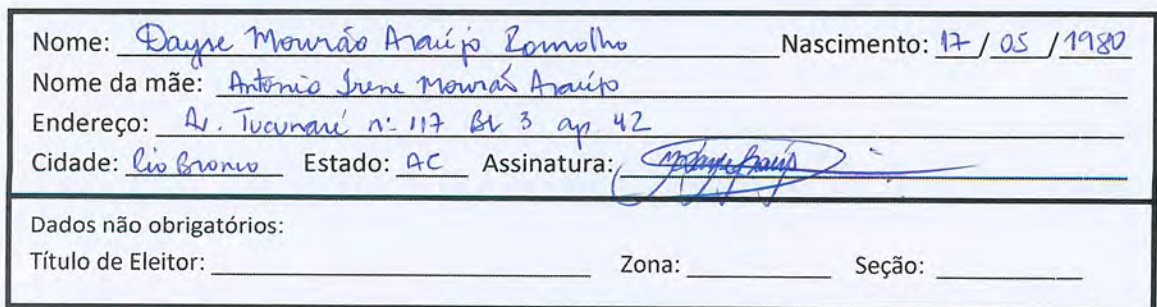 Nome: Dayse Mourão Araújo Ramalho Nascimento: 17 / 05 / 1980
Nome da mãe: Antonia Irene Mourão Araújo
Endereço: Av. Tucunaré nº 117 Bl 3 ap 42
Cidade: Rio Branco Estado: AC Assinatura:
Dados não obrigatórios:
Título de Eleitor: Zona: Seção: